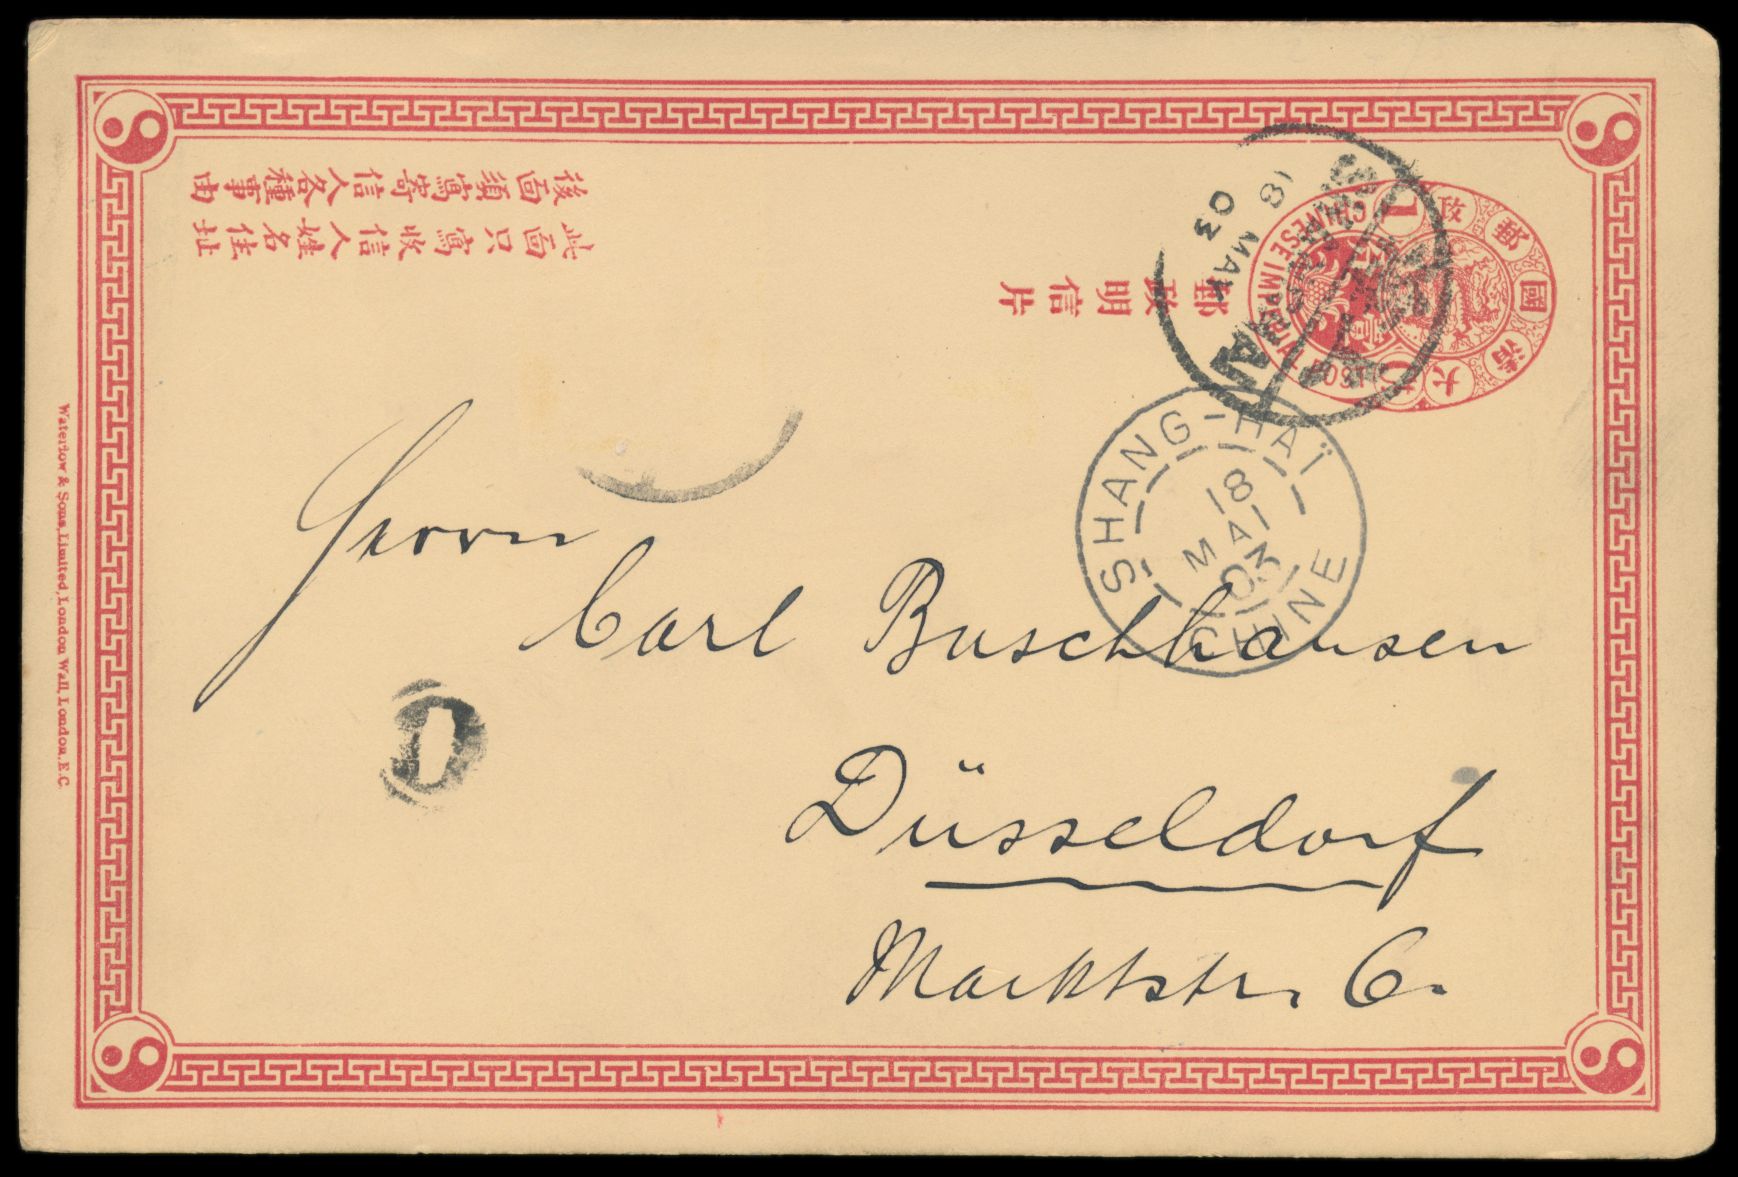 大清國郵政
CHINESE IMPERIAL POST
18 MAY
03
郵政明信片
此面只寫收信人姓名住址
後面須寫寄信人各種事由
SHANG-HAÏ
18
MAI
03
CHINE
Herrn
Carl Buschhausen
Düsseldorf
Marktstr. 6.
Waterlow & Sons, Limited, London Wall, London, E.C.